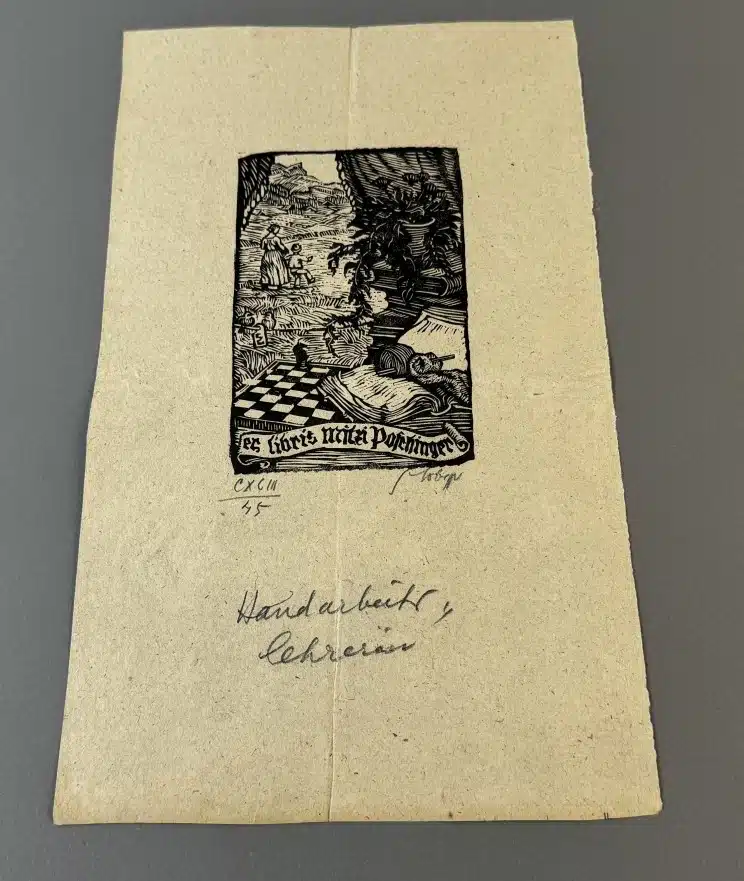 ex libris Mitzi Poschinger
CXCIII
45
Handarbeits,
lehrerin